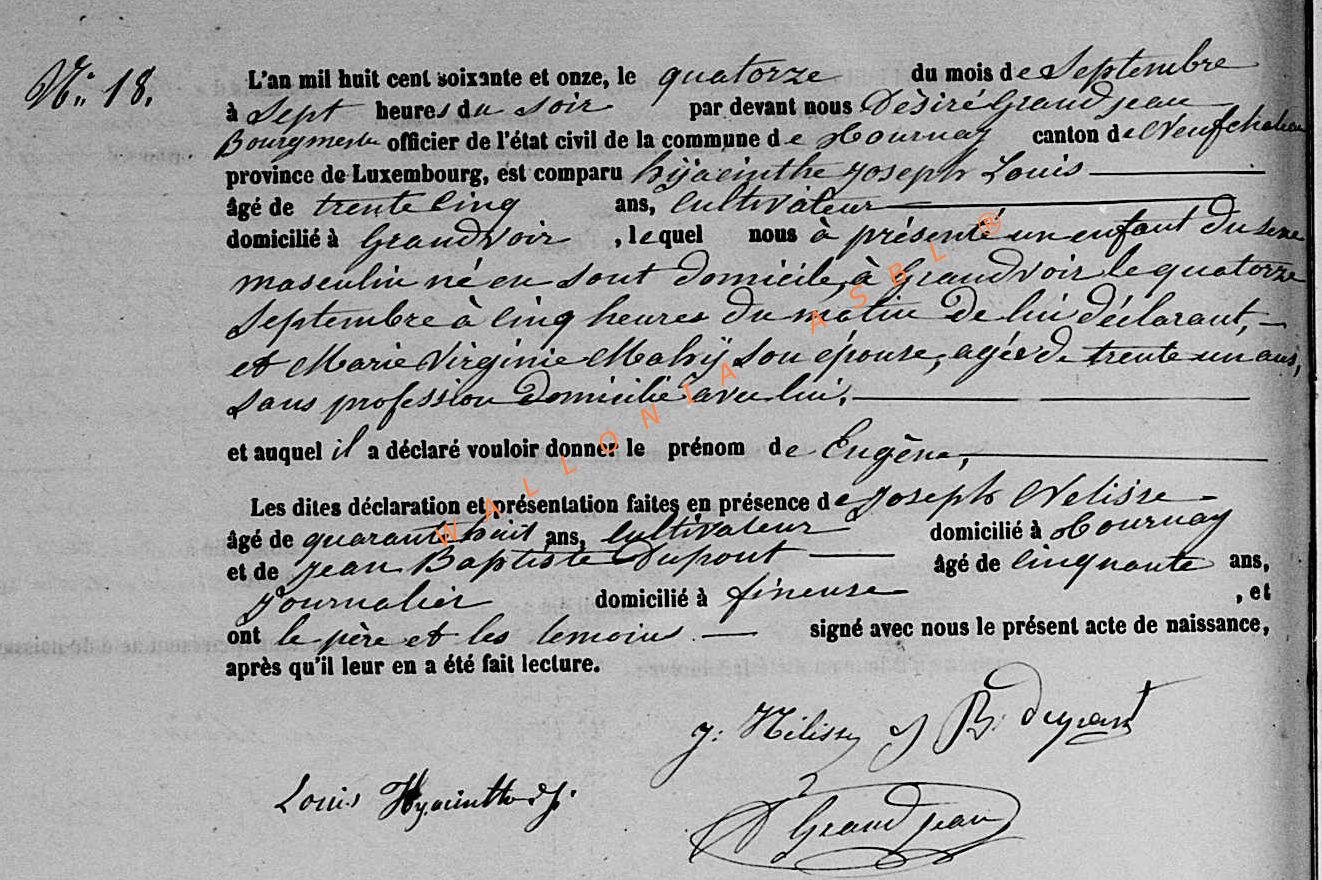 N° 18.
L'an mil huit cent soixante et onze, le quatorze du mois de Septembre
à Sept heures du soir par devant nous Dèsiré Grandjean
Bourgmestre officier de l'état civil de la commune de Tournay canton de Neufchateau
province de Luxembourg, est comparu hyacinthe Joseph Louis
âgé de trente Cinq ans, Cultivateur
domicilié à Grandvoir, lequel nous à présenté un enfant du sexe
masculin né en sont domicile, à Grandvoir le quatorze
Septembre à Cinq heures du matin de lui déclarant,
et Marie Virginie Mahy son épouse, agée de trente un ans,
sans profession domicilié avec lui.
et auquel il a déclaré vouloir donner le prénom de Eugène,
Les dites déclaration et présentation faites en présence de Joseph Nelisse
âgé de quarante huit ans, Cultivateur domicilié à Tournay
et de Jean Baptiste Dupont âgé de Cinquante ans,
Journalier domicilié à fineuse, et
ont le père et les temoins signé avec nous le présent acte de naissance,
après qu'il leur en a été fait lecture.
J: Nilisse J B: dupont
Louis Hyacinthe
D Grandjean
WALLONIA ASBL ®